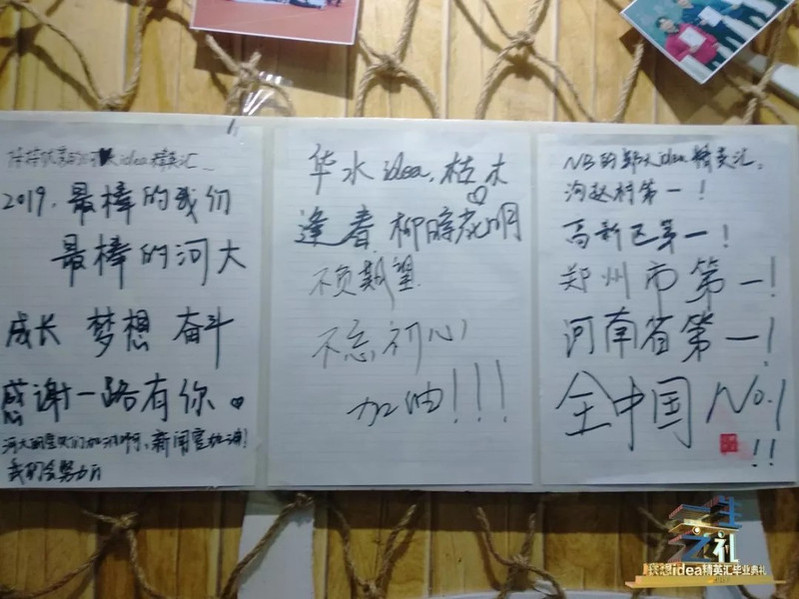 idea精英汇
2019.最棒的我们
最棒的河大
成长 梦想 奋斗
感谢一路有你
新闻
华水idea,枯木
逢春 柳暗花明
不负期望
不忘初心
加油!!!
NB的郑大idea精英汇.
沟赵村第一!
高新区第一!
郑州市第一!
河南省第一!
全中国No.1
!!
idea精英汇毕业典礼